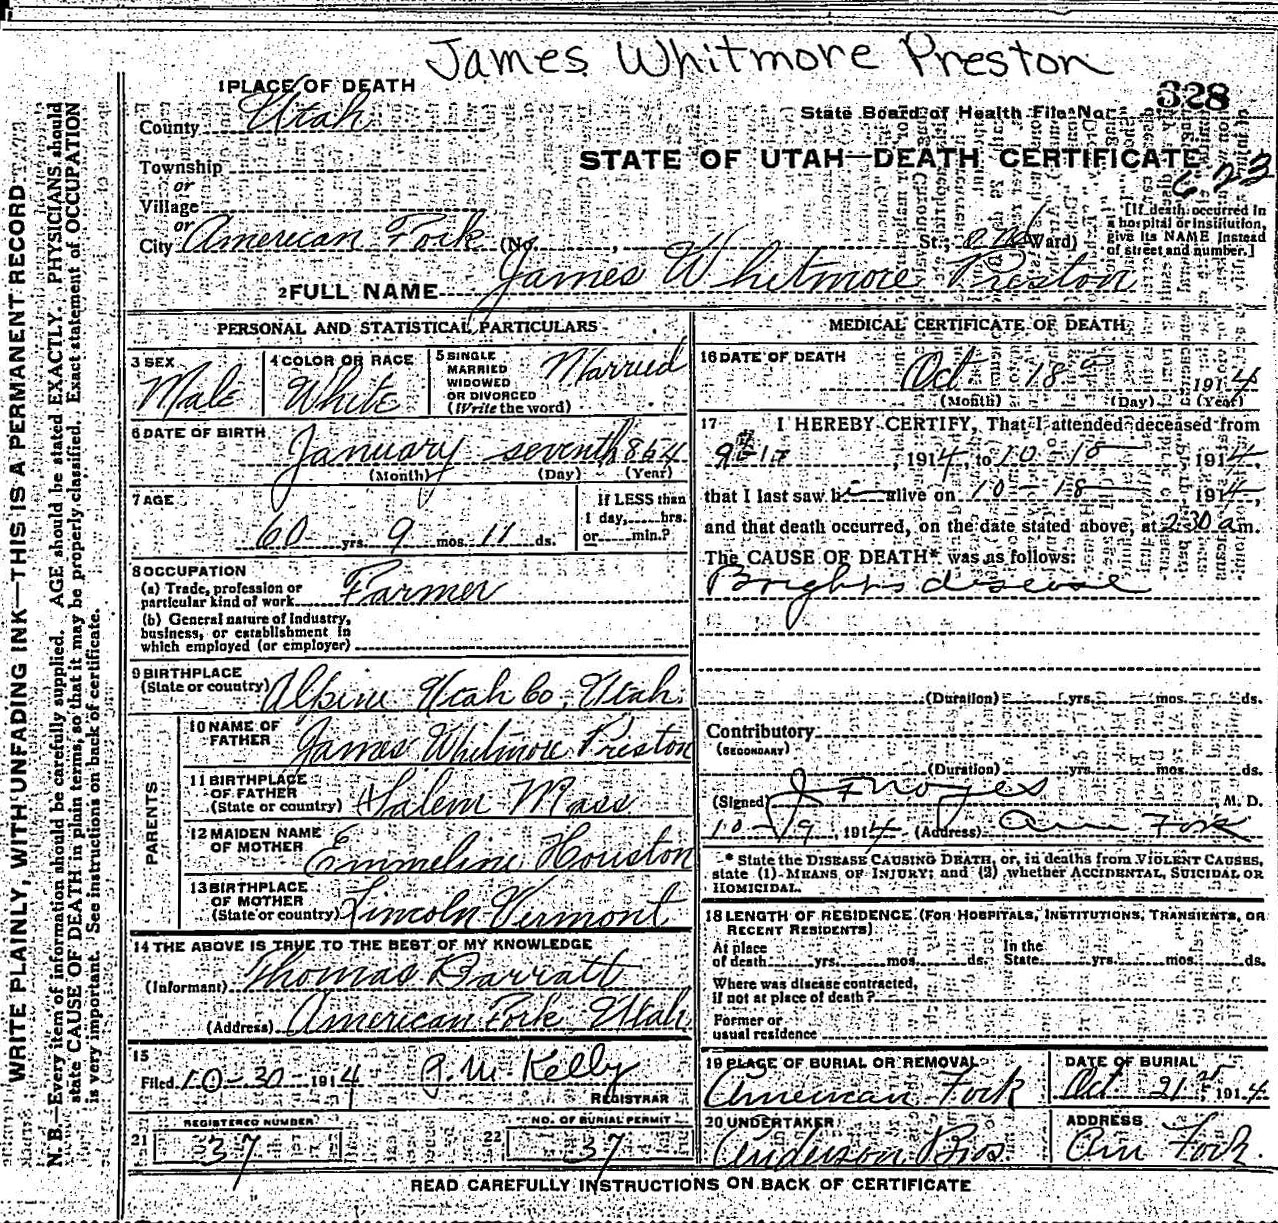 James Whitmore Preston
1 PLACE OF DEATH
328
County Utah
State Board of Health File No.
Township
STATE OF UTAH—DEATH CERTIFICATE
or
Village
or
City American Fork (No. , St.; 2nd Ward)
[If death occurred in
a hospital or institution,
give its NAME instead
of street and number.]
2 FULL NAME James Whitmore Preston
PERSONAL AND STATISTICAL PARTICULARS
3 SEX
Male
4 COLOR OR RACE
White
5 SINGLE
MARRIED
WIDOWED
OR DIVORCED
(Write the word)
Married
6 DATE OF BIRTH
January seventh 1854
(Month) (Day) (Year)
7 AGE
60 yrs. 9 mos. 11 ds.
If LESS than
1 day, hrs.
or min.?
8 OCCUPATION
(a) Trade, profession or
particular kind of work Farmer
(b) General nature of industry,
business, or establishment in
which employed (or employer)
9 BIRTHPLACE
(State or country) Alpine Utah Co, Utah.
PARENTS
10 NAME OF
FATHER James Whitmore Preston
11 BIRTHPLACE
OF FATHER
(State or country) Salem Mass
12 MAIDEN NAME
OF MOTHER Emmeline Houston
13 BIRTHPLACE
OF MOTHER
(State or country) Lincoln Vermont
14 THE ABOVE IS TRUE TO THE BEST OF MY KNOWLEDGE
(Informant) Thomas Barratt
(Address) American Fork, Utah
15
Filed 10-30-1914 Kelly
REGISTRAR
REGISTERED NUMBER
21 37
NO. OF BURIAL PERMIT
22 37
MEDICAL CERTIFICATE OF DEATH
16 DATE OF DEATH
Oct 18 1914
(Month) (Day) (Year)
17 I HEREBY CERTIFY, That I attended deceased from
, 1914, to 10 18 1914,
that I last saw h alive on 10-18 , 1914,
and that death occurred, on the date stated above, at 2:30 a m.
The CAUSE OF DEATH* was as follows:
Brights disease
(Duration) yrs. mos. ds.
Contributory
(SECONDARY)
(Duration) yrs. mos. ds.
(Signed) J F Noyes M. D.
10-19, 1914 (Address) Am Fork
* State the DISEASE CAUSING DEATH, or, in deaths from VIOLENT CAUSES,
state (1) MEANS OF INJURY; and (2) whether ACCIDENTAL, SUICIDAL OR
HOMICIDAL.
18 LENGTH OF RESIDENCE (FOR HOSPITALS, INSTITUTIONS, TRANSIENTS, OR
RECENT RESIDENTS)
At place
of death yrs. mos. ds.
In the
State yrs. mos. ds.
Where was disease contracted,
if not at place of death?
Former or
usual residence
19 PLACE OF BURIAL OR REMOVAL
American Fork
DATE OF BURIAL
Oct 21st, 1914
20 UNDERTAKER
Anderson Bros
ADDRESS
Am Fork.
READ CAREFULLY INSTRUCTIONS ON BACK OF CERTIFICATE
WRITE PLAINLY, WITH UNFADING INK—THIS IS A PERMANENT RECORD
N. B.—Every item of information should be carefully supplied. AGE should be stated EXACTLY. PHYSICIANS should
state CAUSE OF DEATH in plain terms, so that it may be properly classified. Exact statement of OCCUPATION
is very important. See instructions on back of certificate.